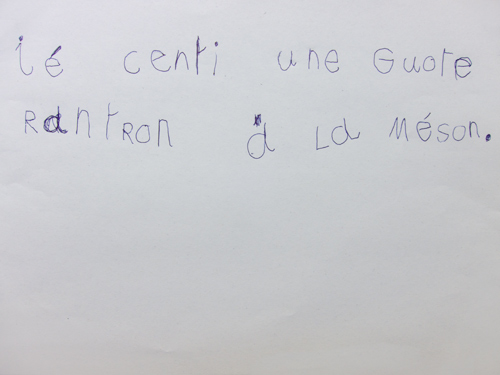 ié centi une Guote
RantRon à La Méson.